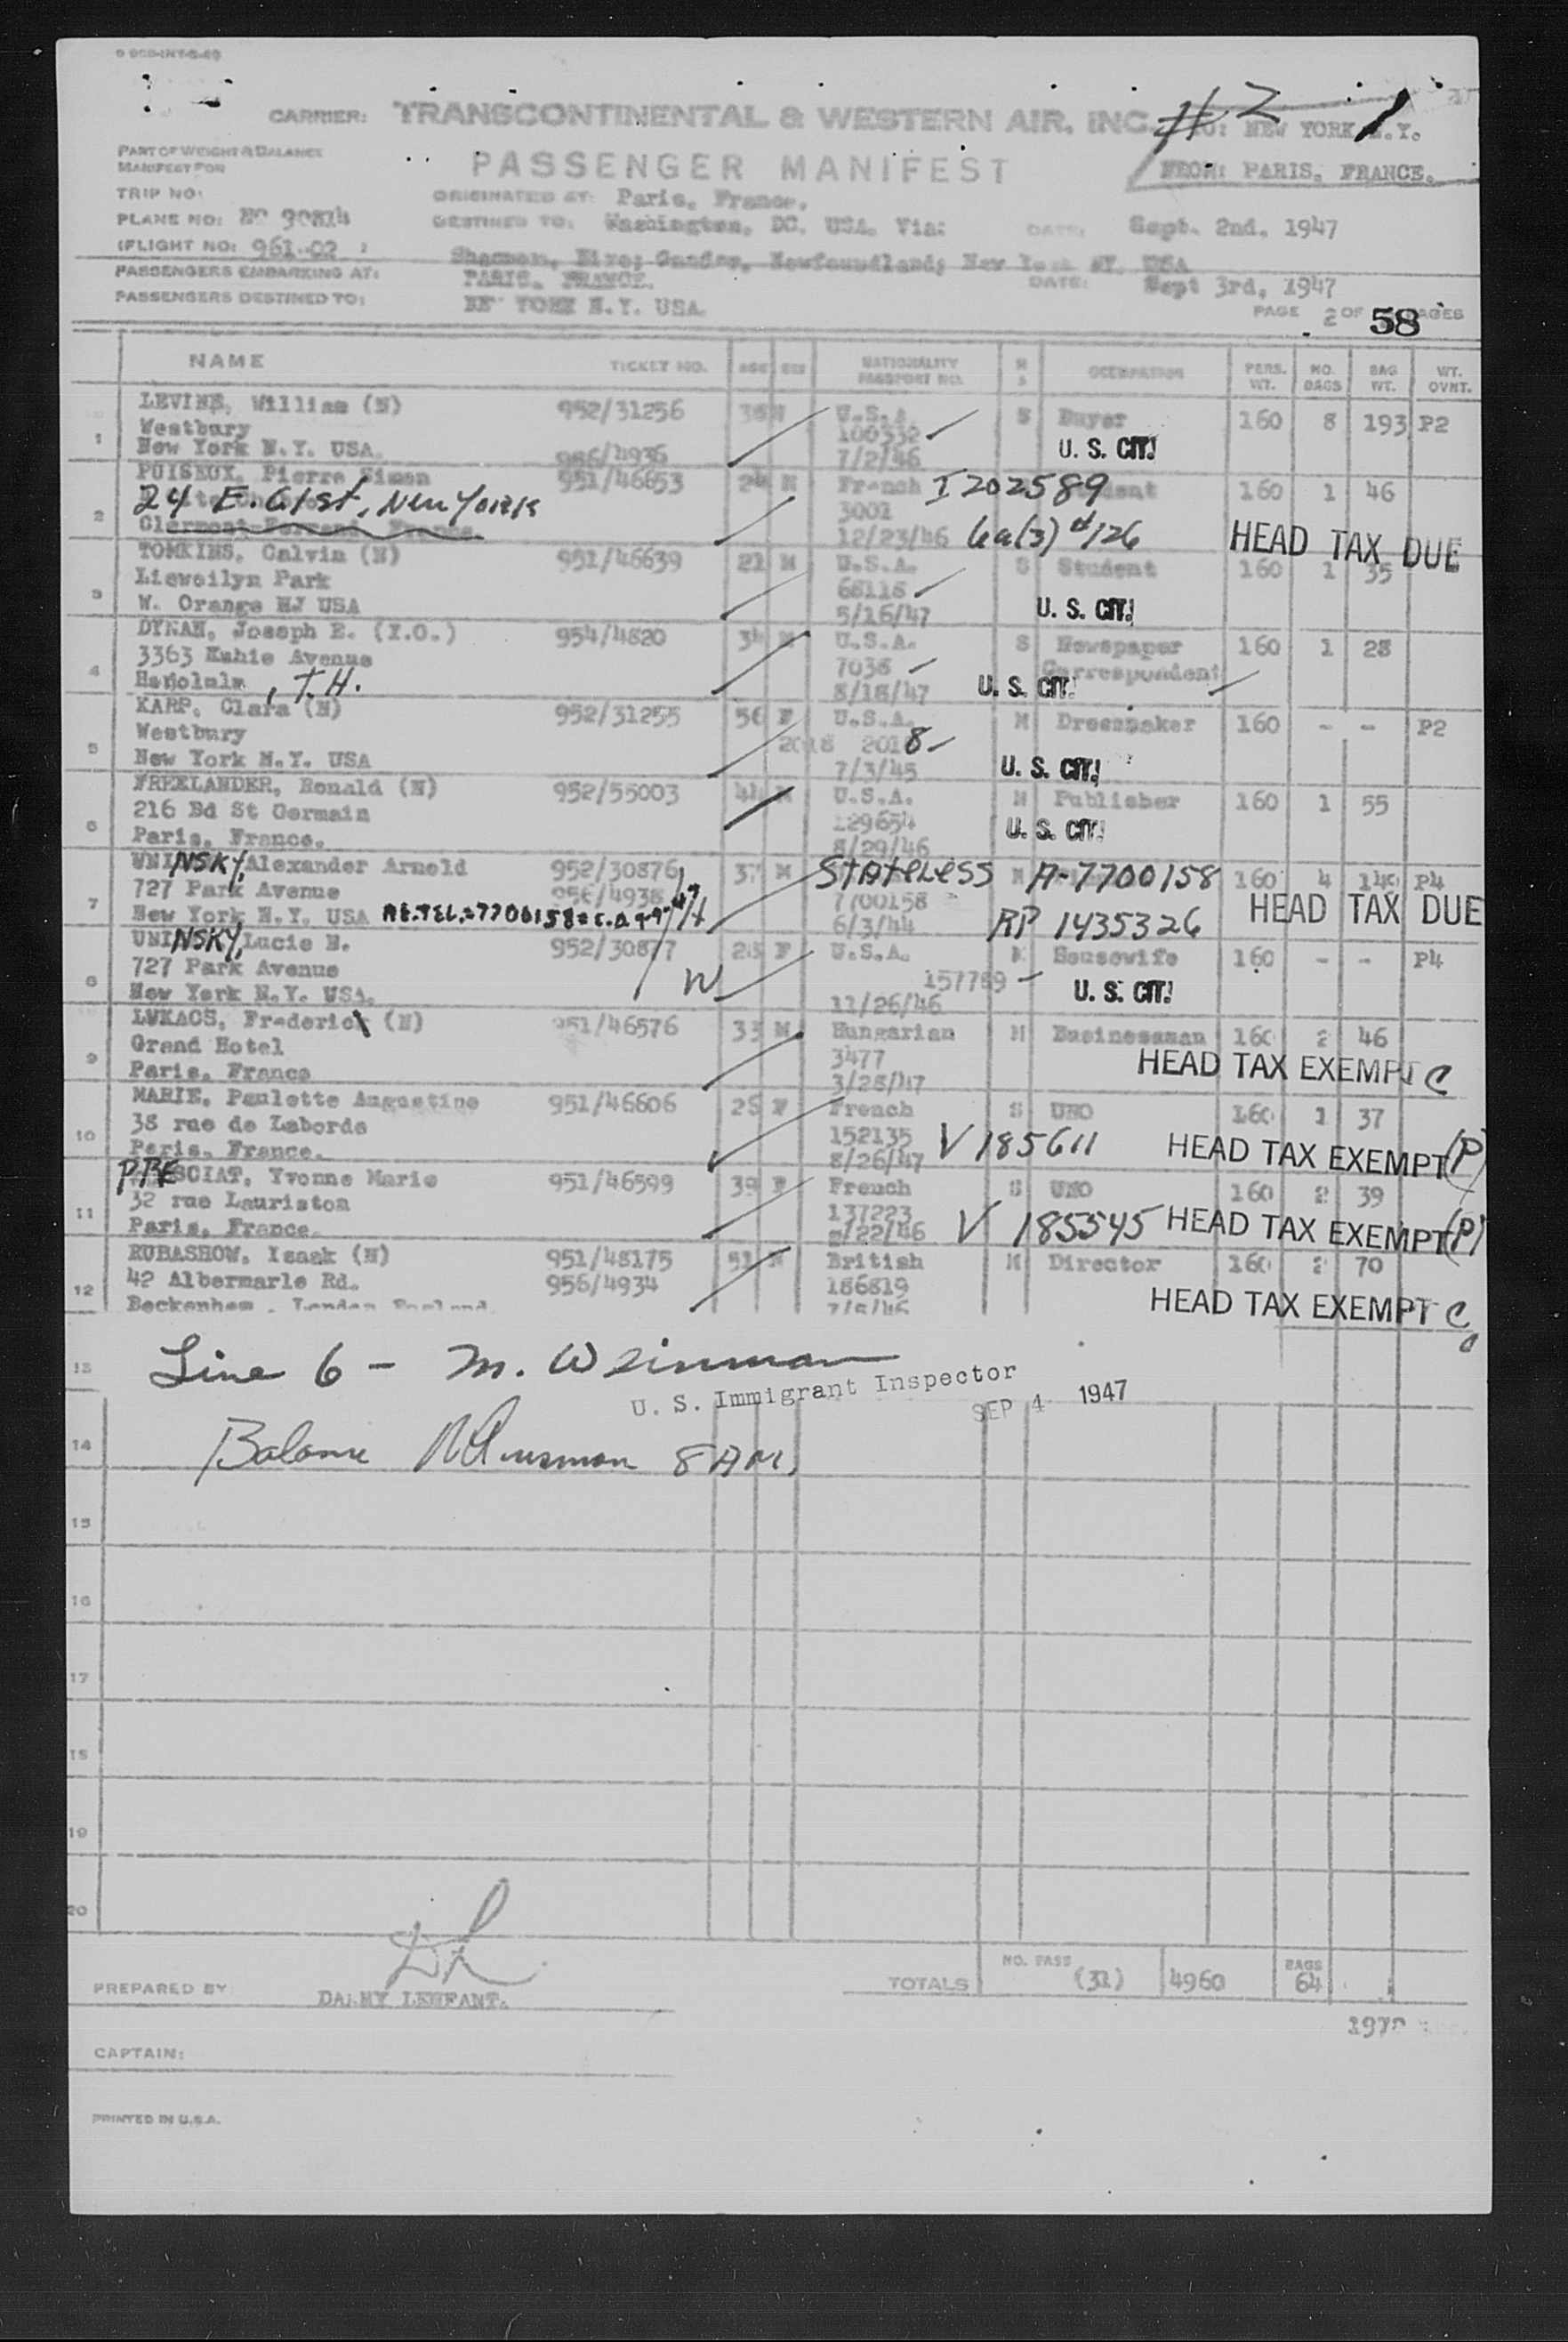 CARRIER: TRANSCONTINENTAL & WESTERN AIR, INC. #2 TO: NEW YORK N.Y.
PART OF WEIGHT & BALANCE
MANIFEST FOR
PASSENGER MANIFEST FROM: PARIS, FRANCE.
TRIP NO: ORIGINATED AT: Paris, France.
PLANE NO: NC 90814 DESTINED TO: Washington, DC. USA. Via: DATE: Sept. 2nd, 1947
(FLIGHT NO: 961-02 ) Shannon, Eire; Gander, Newfoundland; New York NY. USA
PASSENGERS EMBARKING AT: PARIS, FRANCE. DATE: Sept 3rd, 1947
PASSENGERS DESTINED TO: NEW YORK N.Y. USA.
PAGE 2 OF 58 PAGES
NAME TICKET NO. AGE SEX NATIONALITY PASSPORT NO. M S OCCUPATION PERS. WT. NO. BAGS BAG WT. WT. OVNT.
LEVINE, William (N) 952/31256 U.S.A. S Buyer 160 8 193 P2
Westbury 100332
1 New York N.Y. USA. 956/4936 7/2/46 U. S. CIT.
PUISEUX, Pierre Simon 951/46653 24 M French I 202589 160 1 46
24 E. 61 st. New York 3001
2 Clermont-Ferrand, France 12/23/46 6a(3) d/126 HEAD TAX DUE
TOMKINS, Calvin (N) 951/46639 21 M U.S.A. S Student 160 1 35
Llewellyn Park 68118
3 W. Orange NJ USA 5/16/47 U. S. CIT.
DYNAN, Joseph E. (I.O.) 954/4820 34 M U.S.A. S Newspaper 160 1 28
3363 Kuhio Avenue 7038 Correspondent
4 Honolulu, T.H. 8/18/47 U. S. CIT.
KARP, Clara (N) 952/31255 56 F U.S.A. M Dressmaker 160 - - P2
Westbury 2018 2018
5 New York N.Y. USA 7/3/45 U. S. CIT.
FREELANDER, Ronald (N) 952/55003 44 M U.S.A. M Publisher 160 1 55
216 Bd St Germain 129654
6 Paris, France. 8/29/46 U. S. CIT.
UNINSKY, Alexander Arnold 952/30876 37 M STATELESS M A-7700158 160 4 140 P4
727 Park Avenue 956/4938 7700158 HEAD TAX DUE
7 New York N.Y. USA 6/3/44 RP 1435326
UNINSKY, Lucie H. 952/30877 28 F U.S.A. M Housewife 160 - - P4
727 Park Avenue 157789
8 New York N.Y. USA. W 11/26/46 U. S. CIT.
LUKACS, Frederick (N) 951/46576 33 M Hungarian M Businessman 160 2 46
Grand Hotel 3477
9 Paris, France 3/28/47 HEAD TAX EXEMPT C
MARIE, Paulette Augustine 951/46606 28 F French S UNO 160 1 37
38 rue de Laborde 152135
10 Paris, France. 8/26/47 V 185611 HEAD TAX EXEMPT (P)
SCIAT, Yvonne Marie 951/46599 39 F French S UNO 160 2 39
32 rue Lauriston 137223
11 Paris, France. V 185545 HEAD TAX EXEMPT (P)
RUBASHOW, Isaak (N) 951/48175 51 M British M Director 160 2 70
42 Albermarle Rd. 956/4934 186819
12 Beckenham, London England HEAD TAX EXEMPT C
13 Line 6 - M. Weinman
U. S. Immigrant Inspector
SEP 4 1947
14 Balance 8 AM.
15
16
17
18
19
20
PREPARED BY DANNY LENFANT. TOTALS NO. PASS (31) 4960 BAGS 64
CAPTAIN:
PRINTED IN U.S.A.